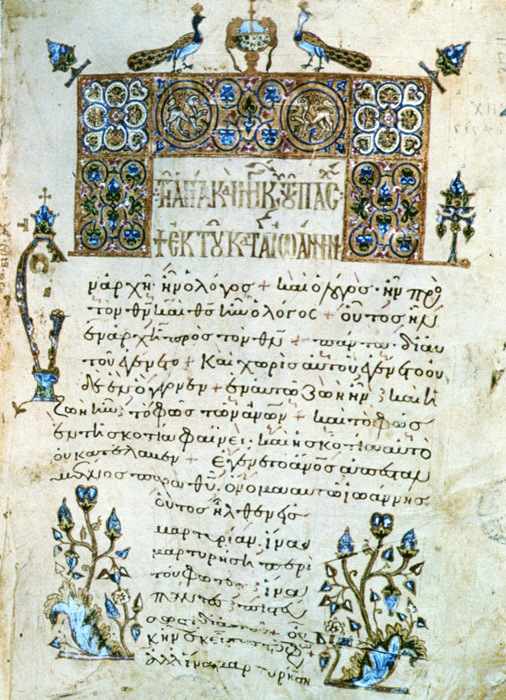 τῇ ἁγίᾳ κ(αὶ) μ κυ πασ
ἐκ τοῦ κατὰ Ἰωάννην
ν ἀρχῇ ἦν ὁ λόγος + καὶ ὁ λόγος ἦν πρὸ
τὸν θν καὶ θς ἦν ὁ λόγος + οὗτος ἦν
ἐν ἀρχῇ πρὸς τὸν θν + πάντα διαυ
τοῦ ἐγένετο + Καὶ χωρὶς αὐτοῦ ἐγένετο ου
δὲ ἓν ὃ γέγονεν + ἐν αὐτῷ ζωὴ ἦν καὶ ἡ
ζωὴ ἦν τὸ φῶς τῶν ἀνων + καὶ τὸ φῶς
ἐν τῇ σκοτίᾳ φαίνει· καὶ ἡ σκοτία αὐτὸ
οὐ κατέλαβεν + Ἐγένετο ἀνος ἀπεσταλ
μένος παρὰ θυ· ὄνομα αὐτῷ ἰωάννης
οὗτος ἦλθεν εἰς
μαρτυρίαν· ἵνα
μαρτυρήσῃ περὶ
τοῦ φωτός· ἵνα
πάντες πιστεύ
σωσι δι αὐτοῦ + οὐ
κ ἦν ἐκεῖνος τὸ φῶς
ἀλλ ἵνα μαρτυρήσῃ